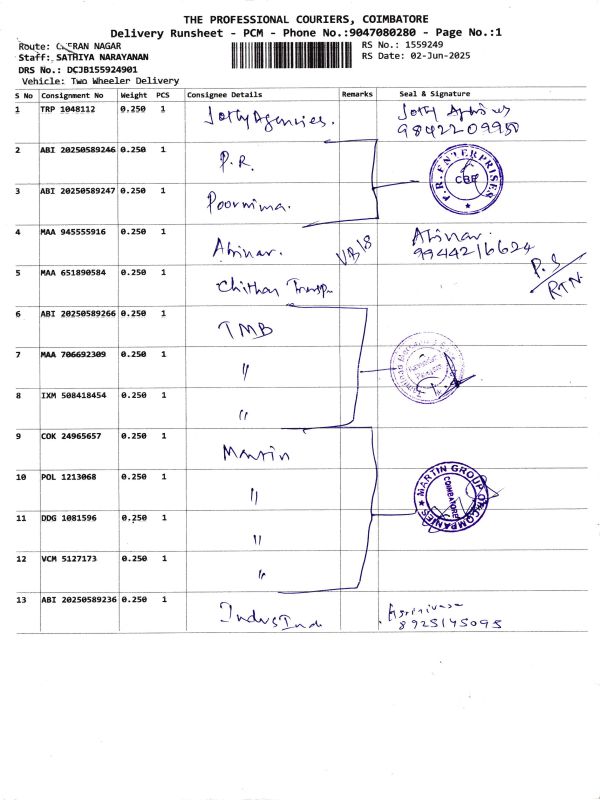 THE PROFESSIONAL COURIERS, COIMBATORE
Delivery Runsheet - PCM - Phone No.:9047080280 - Page No.:1
Route: CHERAN NAGAR
RS No.: 1559249
Staff: SATHIYA NARAYANAN
RS Date: 02-Jun-2025
DRS No.: DCJB155924901
Vehicle: Two Wheeler Delivery
S No Consignment No Weight PCS Consignee Details Remarks Seal & Signature
1 TRP 1048112 0.250 1 Jothy Agencies. Jothy Agencies
9842209950
2 ABI 20250589246 0.250 1 P.R.
P.R. ENTERPRISES
CBE
3 ABI 20250589247 0.250 1 Poornima.
4 MAA 945555916 0.250 1 Abinav. VB18 Abinav.
9944216624
5 MAA 651890584 0.250 1 Chithan Transp. P.S / RTN
6 ABI 20250589266 0.250 1 TMB
7 MAA 706692309 0.250 1 "
8 IXM 508418454 0.250 1 "
9 COK 24965657 0.250 1 Martin
10 POL 1213068 0.250 1 "
MARTIN GROUP OF COMPANIES
COIMBATORE
11 DDG 1081596 0.250 1 "
12 VCM 5127173 0.250 1 "
13 ABI 20250589236 0.250 1 IndusInd
8925145095